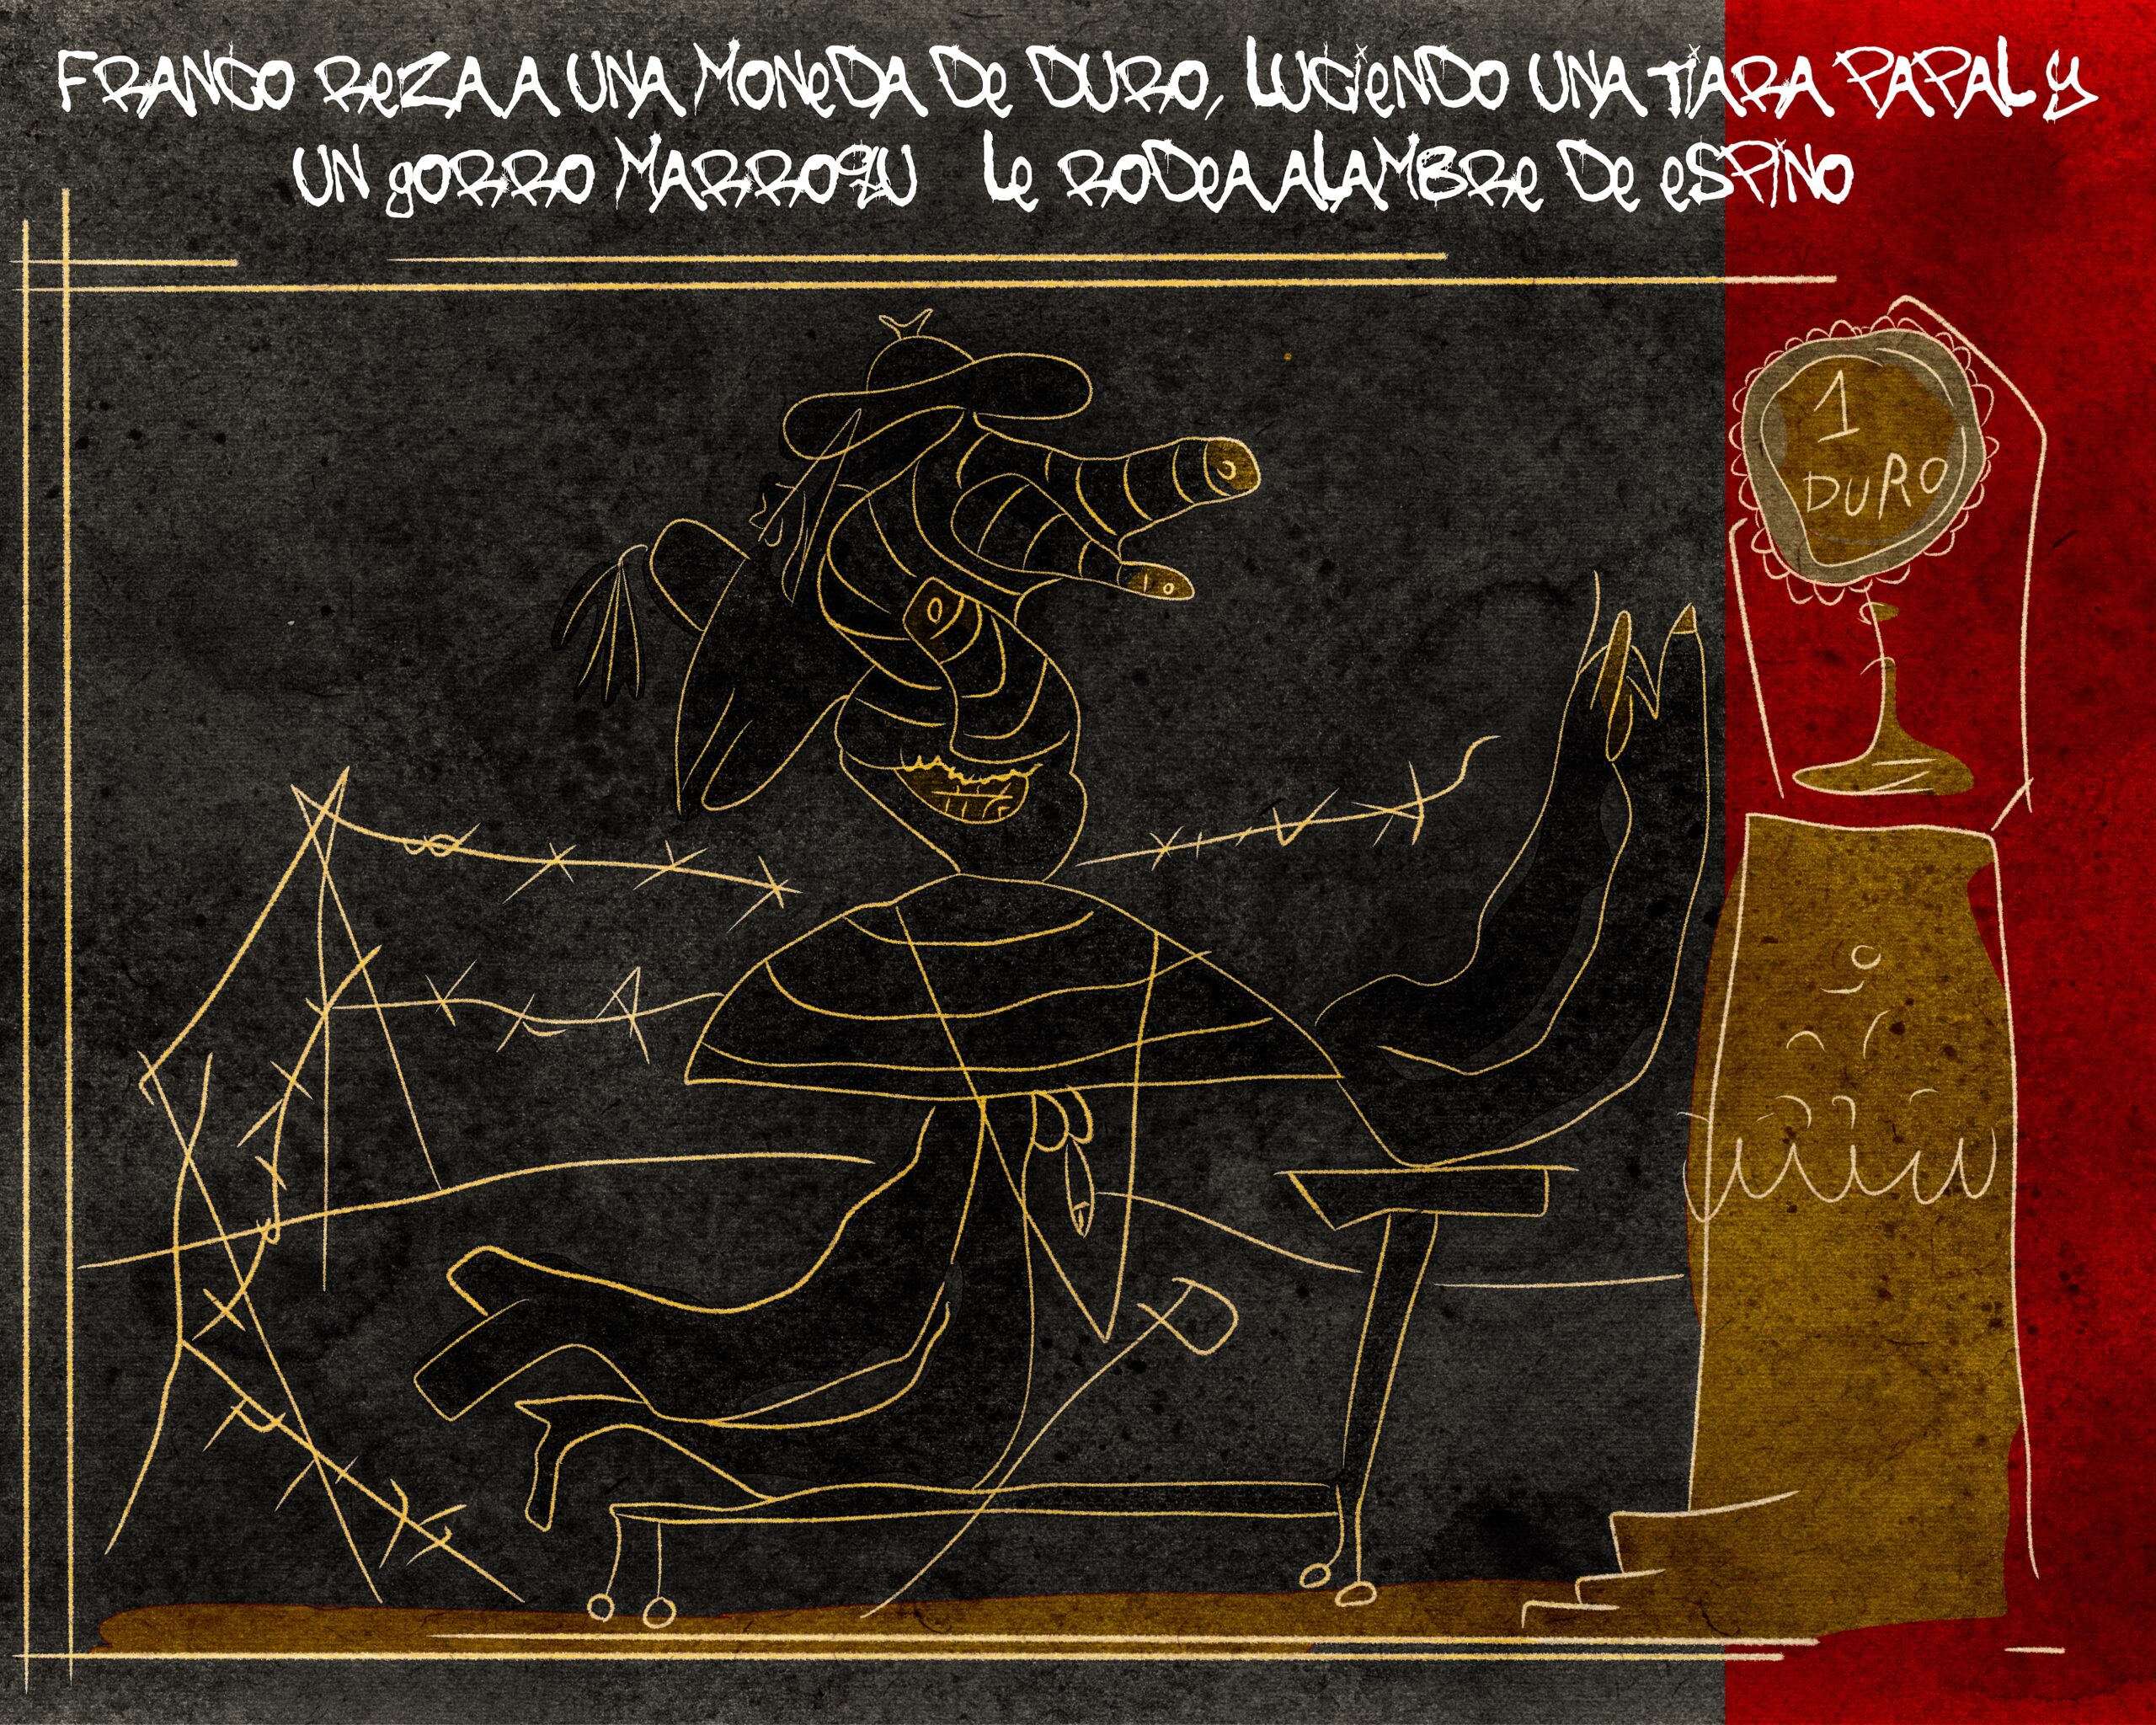 FRANCO REZA A UNA MONEDA DE DURO, LUCIENDO UNA TIARA PAPAL Y
UN GORRO MARROQU LE RODEA ALAMBRE DE ESPINO
1
DURO